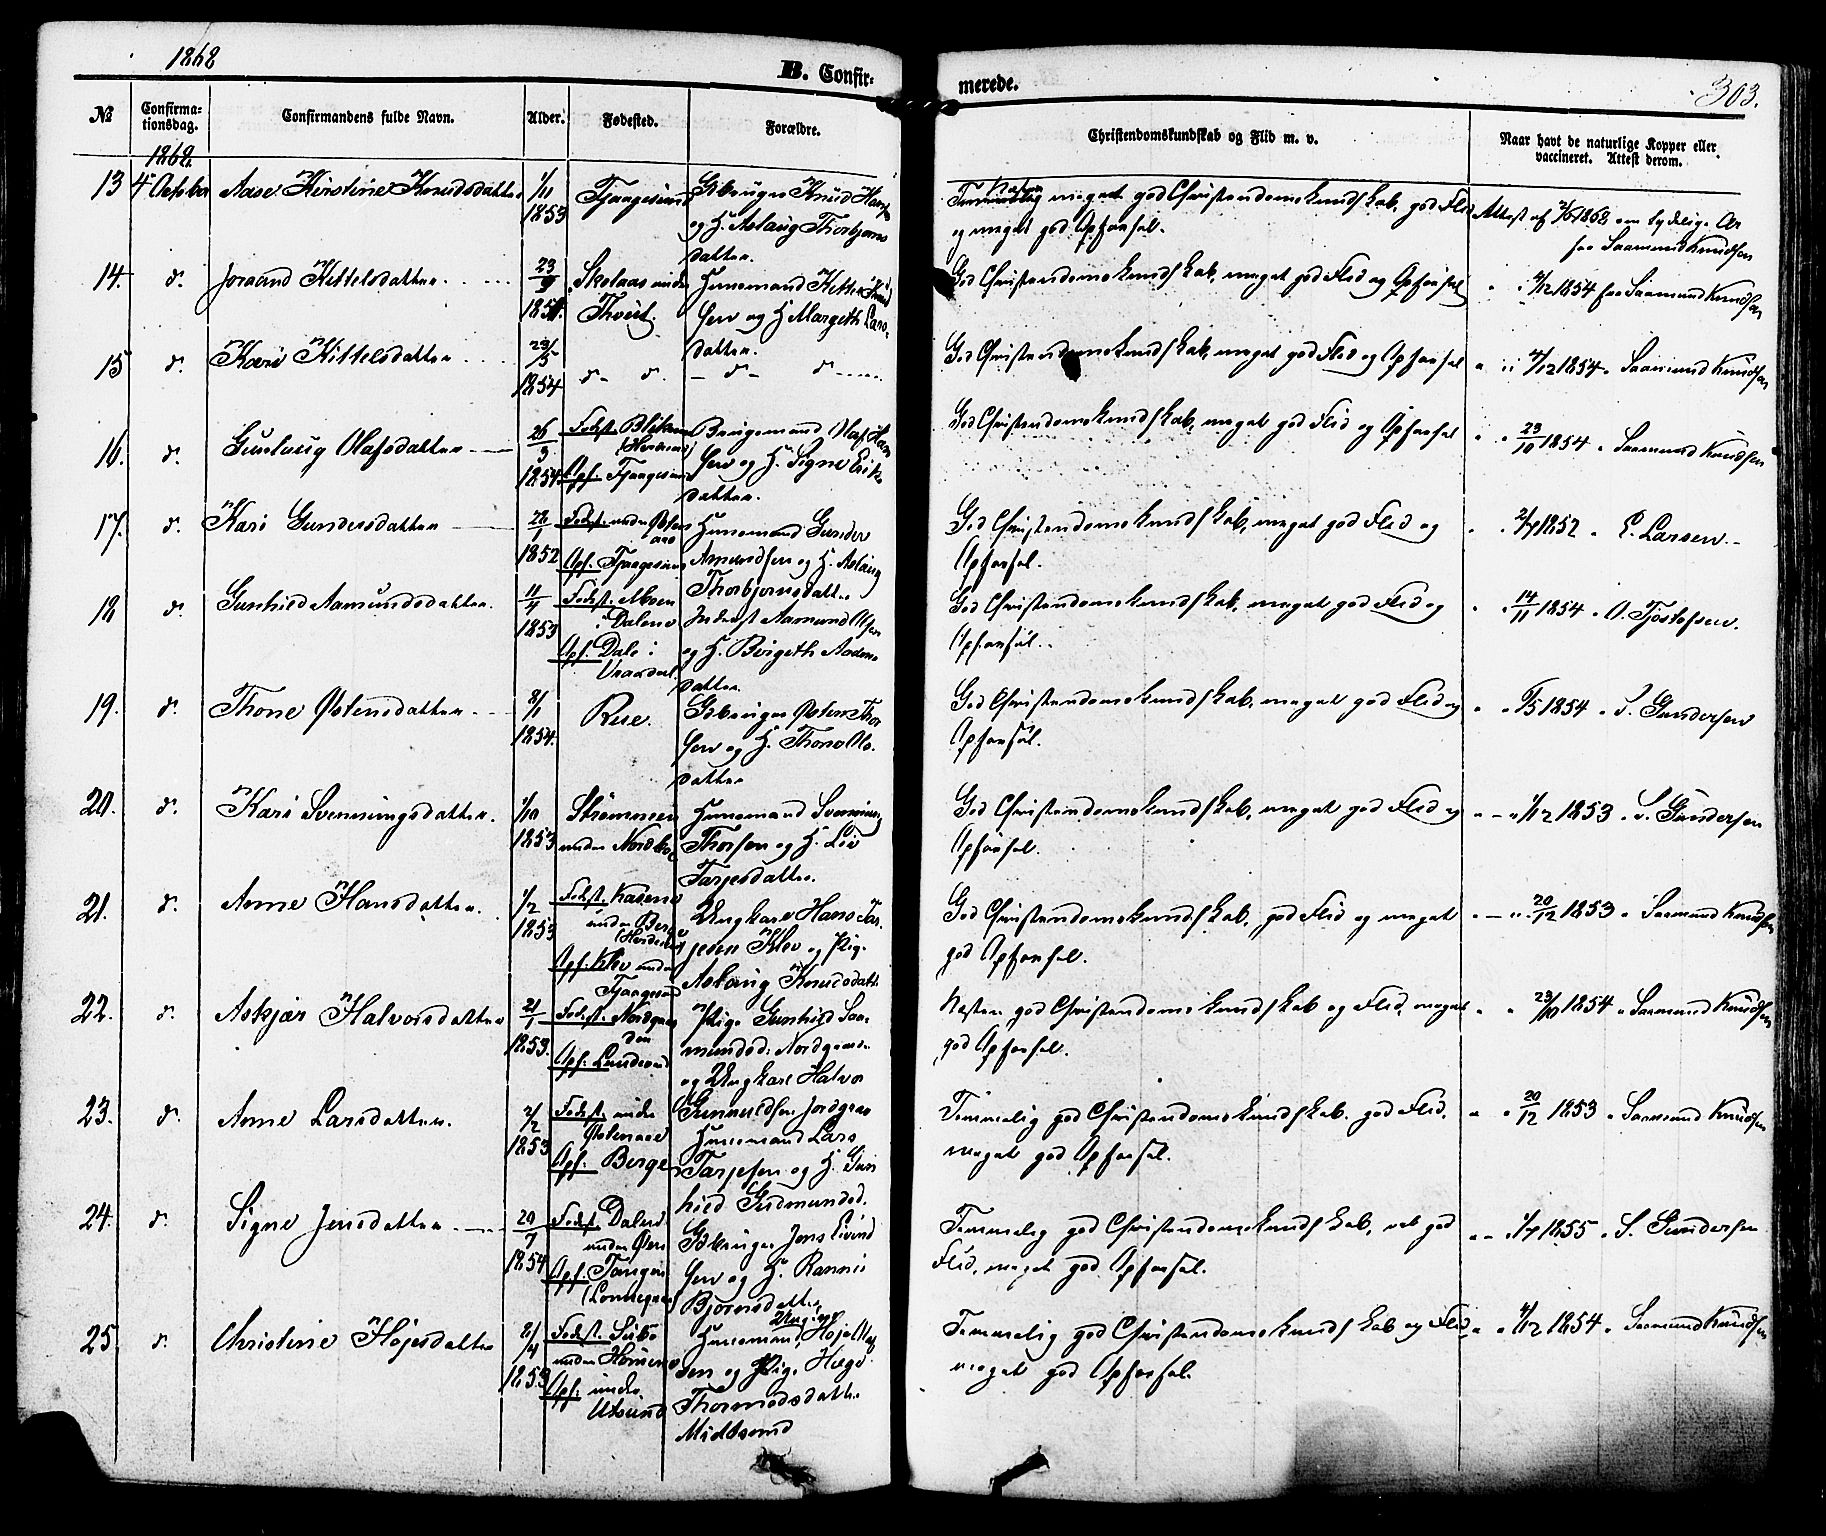 1868
B. Confir-
merede.
303.
№
Confirma-
tionsdag.
Confirmandens fulde Navn.
Alder.
Fødested.
Forældre.
Christendomskundskab og Flid m. v.
Naar havt de naturlige Kopper eller
vaccineret. Attest derom.
1868.
13 4 October Aase Kirstine Knudsdatter 1/11 1853 Gbruger Knud
og H. Aslaug Thorbjørns
datter.
meget god Christendomskundskab, god Flid
og meget god Opførsel.
Attest af 1868 om tydelige Ar
fra Saamund Knudsen
14. d. Joraand Kittelsdatter 23/9 1851. Skolaas under
Thveit.
Huusmand Kittel
sen og H. Margith Lars-
datter.
God Christendomskundskab, meget god Flid og Opførsel
" " 4/12 1854 fra Saamund Knudsen
15 d. Kari Kittelsdatter 23/5 1854 d- d. - d- d
God Christendomskundskab, meget god Flid og Opførsel
" " 4/12 1854 " Saamund Knudsen
16. d. Gunlaug Olafsdatter 26/3 1854 Fødest.
Opf.
Brugsmand Olaf
sen og H. Signe Eriks
datter.
God Christendomskundskab, meget god Flid og Opførsel
" " 23/10 1854 " Saamund Knudsen
17. d. Kari Gundersdatter 28/1 1852 Fødest. under
Opf.
Huusmand Gunder
Amundsen og H. Aslaug
Thorbjørnsdatter
God Christendomskundskab, meget god Flid og
Opførsel.
" 1852 " E. Larsen
18 d. Gunhild Aamundsdatter. 11/7 1853 Fødest. Moen
i Dalene
Opf. Dale i
Vraadal
Inderst Aamund Olsen
og H. Birgith Aadne
datter
God Christendomskundskab, meget god Flid og
Opførsel.
" " 14/11 1854 " O. Tjostofsen.
19. d. Thone Østensdatter 8/1 1854. Rue.
Gbruger Østen Thor
sen og H. Thone Ols-
datter
God Christendomskundskab, meget god Flid og
Opførsel.
" " 1854 " S. Gundersen
20. d. Kari Svenningsdatter. 1/10 1853 Strømmen
under Nordbø
Huusmand Svenning
Thorsen og H. Liv
Tarjesdatter.
God Christendomskundskab, meget god Flid og
Opførsel.
" " 1/12 1853 " S. Gundersen
21. d. Anne Hansdatter. 1/2 1853 Fødest.
under Berge
Opf. Klev under
Ungkarl Hans Tar-
jesen Klev og Pige
Aslaug Knudsdatter
God Christendomskundskab, god Flid og meget
god Opførsel.
" " 20/12 1853 " Saamund Knudsen
22. d. Askjær Halvorsdatter 21/1 1853. Fødest. Nordgaar
den
Opf. Landsend
Pige Gunhild Saa-
mundsd. Nordgaarden
og Ungkarl Halvor
Næsten god Christendomskundskab og Flid, meget
god Opførsel.
" " 23/10 1854 " Saamund Knudsen
23. d. Anne Larsdatter. 2/2 1853 Fødest. under
Østenaae
Opf. Berge
Huusmand Lars
Tarjesen og H. Gun
hild Gudmundsd.
Temmelig god Christendomskundskab. god Flid.
meget god Opførsel.
" " 20/12 1853 " Saamund Knudsen
24. d. Signe Jensdatter 20/7 1854 Fødest. Dalene
under
Opf.
Gbruger Jens Eivind
sen og H. Rannei
Bjørnsdatter
Temmelig god Christendomskundskab, ret god
Flid, meget god Opførsel.
" " 1855 " S. Gundersen
25 d. Christine Højesdatter 8/4 1853 Fødest.
under
Opf. under
Utsund
Huusmand
sen og Pige Hæge
Thormodsdatter
Midtsund
Temmelig god Christendomskundskab og Flid
meget god Opførsel.
" " 4/12 1854 " Saamund Knudsen